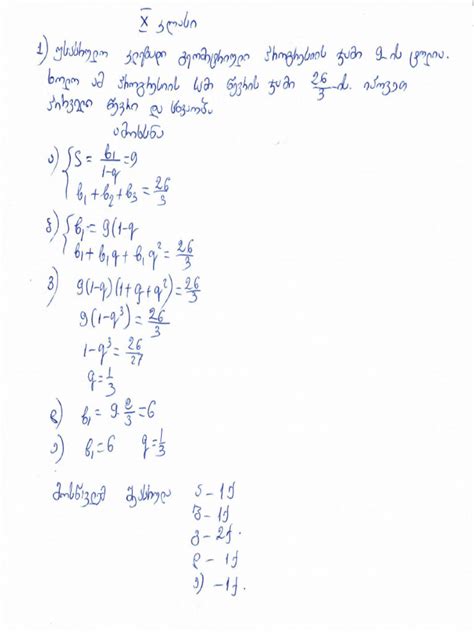 X კლასი
1) უსასრულო კლებადი გეომეტრიული პროგრესიის ჯამი 9-ის ტოლია.
ხოლო ამ პროგრესიის სამ წევრის ჯამი 26/3-ის. იპოვეთ
პირველი წევრი და
ამოხსნა
ა) { S = b₁/(1-q) = 9
b₁ + b₂ + b₃ = 26/3
ბ) { b₁ = 9(1-q
b₁ + b₁q + b₁q² = 26/3
გ) 9(1-q)(1+q+q²) = 26/3
9(1-q³) = 26/3
1-q³ = 26/27
q = 1/3
დ) b₁ = 9·2/3 = 6
ე) b₁ = 6 q = 1/3
მოსწავლემ ა – 1ქ
ბ – 1ქ
გ – 2ქ.
დ – 1ქ
ე) – 1ქ.